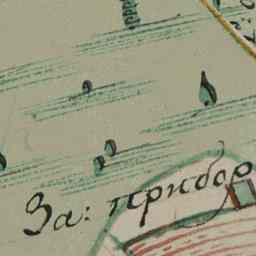 За: прибор